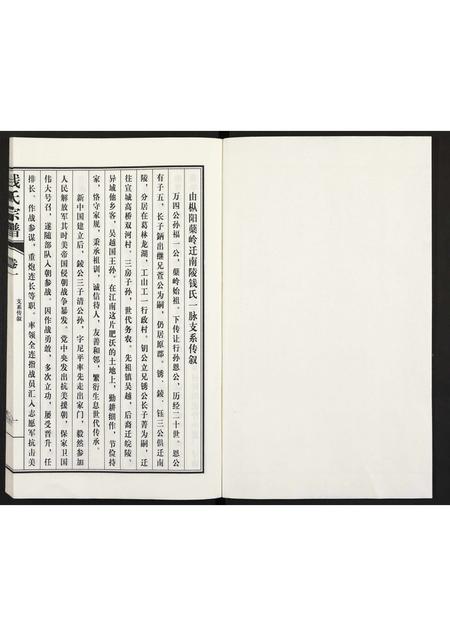 由枞阳蘽岭迁南陵钱氏一脉支系传叙
万四公孙福一公，蘽岭始祖。下传让行孙恩公，历经二十世。恩公
有子五，长子鈵出继兄萱公为嗣，仍居原郡。锈、錂、钰三公俱迁南
陵，分居在葛林龙湖，工山工一行政村。钥公立兄锈公长子菁为嗣，迁
往宣城高桥双河村。三房子孙，世代务农。先祖镇吴越，后裔迁皖陵。
异城他乡客，吴越国王孙。在江南这片肥沃的土地上，勤耕细作，节俭持
家，恪守家规，秉承祖训，诚信待人，友善和邻，繁衍生息世代传承。
新中国建立后，錂公三子清公孙，字足平率先走出家门，毅然参加
人民解放军其时美帝国侵朝战争暴发。党中央发出抗美援朝，保家卫国
伟大号召，遂随部队入朝参战。因作战勇敢，多次立功，屡受晋升，任
排长、作战参谋、重炮连长等职。率领全连指战员汇入志愿军抗击美
钱氏宗谱
卷一
支系传叙